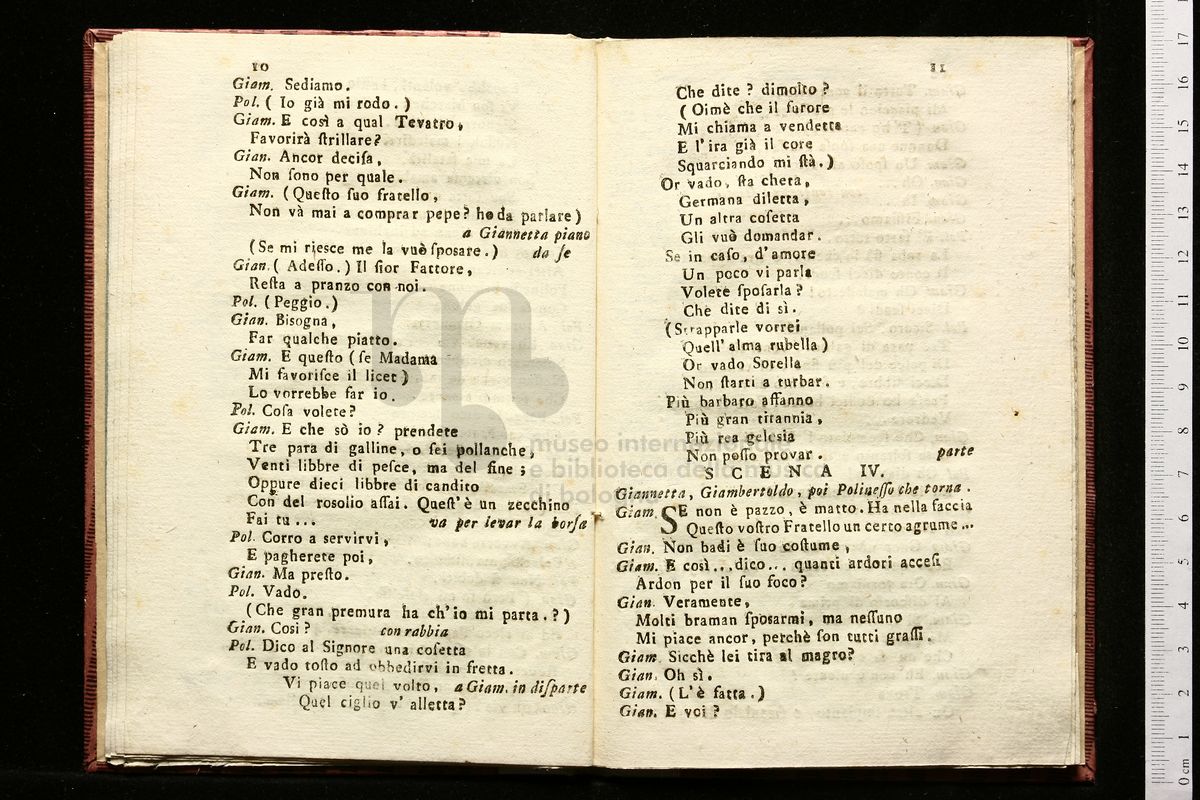 10
Giam. Sediamo.
Pol. ( Io già mi rodo. )
Giam. E così a qual Tevatro,
Favorirà ſtrillare?
Gian. Ancor deciſa,
Non ſono per quale.
Giam. (Queſto ſuo fratello,
Non và mai a comprar pepe? ho da parlare)
a Giannetta piano
(Se mi rieſce me la vuè ſpoſare.) da ſe
Gian. ( Adeſſo. ) Il ſior Fattore,
Reſta a pranzo con noi.
Pol. (Peggio.)
Gian. Biſogna,
Far qualche piatto.
Giam. E queſto (ſe Madama
Mi favoriſce il licet)
Lo vorrebbe far io.
Pol. Coſa volete?
Giam. E che sò io? prendete
Tre para di galline, o ſei pollanche,
Venti libbre di peſce, ma del fine;
Oppure dieci libbre di candito
Con del roſolio aſſai. Queſt'è un zecchino
Fai tu... va per levar la borſa
Pol. Corro a ſervirvi,
E pagherete poi,
Gian. Ma preſto.
Pol. Vado.
(Che gran premura ha ch'io mi parta.?)
Gian. Così? con rabbia
Pol. Dico al Signore una coſetta
E vado toſto ad obbedirvi in fretta.
Vi piace quel volto, a Giam. in diſparte
Quel ciglio v' alletta?
11
Che dite? dimolto?
(Oimè che il furore
Mi chiama a vendetta
E l'ira già il core
Squarciando mi ſtà.)
Or vado, ſta cheta,
Germana diletta,
Un altra coſetta
Gli vuò domandar.
Se in caſo, d'amore
Un poco vi parla
Volete ſpoſarla?
Che dite di sì.
(Strapparle vorrei
Quell' alma rubella)
Or vado Sorella
Non ſtarti a turbar.
Più barbaro affanno
Più gran titannia,
Più rea geleſia
Non poſſo provar. parte
SCENA IV.
Giannetta, Giambertoldo, poi Polineſſo che torna.
Giam. SE non è pazzo, è matto. Ha nella faccia
Queſto voſtro Fratello un certo agrume...
Gian. Non badi è ſuo coſtume,
Giam. E così...dico... quanti ardori acceſi
Ardon per il ſuo foco?
Gian. Veramente,
Molti braman ſpoſarmi, ma neſſuno
Mi piace ancor, perchè ſon tutti graſſi.
Giam. Sicchè lei tira al magro?
Gian. Oh sì.
Giam. (L'è fatta.)
Gian. E voi?
museo internazionale
e biblioteca della musica
di bologna
0 cm 1 2 3 4 5 6 7 8 9 10 11 12 13 14 15 16 17